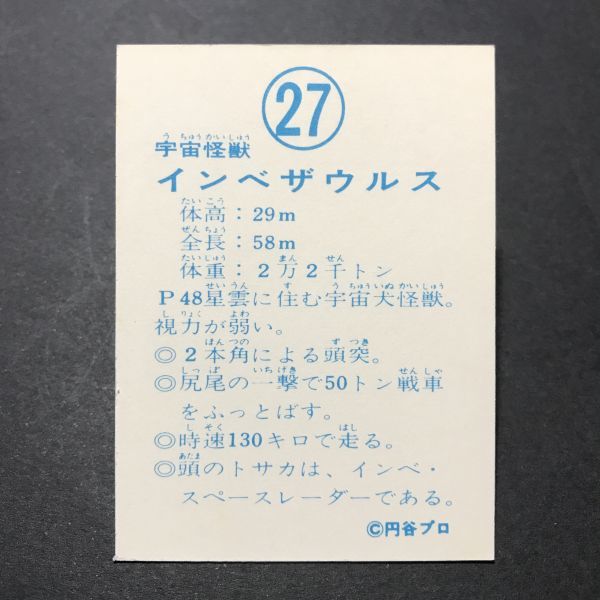 27
宇宙怪獣
インベザウルス
体高：29m
全長：58m
体重：2万2千トン
P48星雲に住む宇宙犬怪獣。
視力が弱い。
◎2本角による頭突。
◎尻尾の一撃で50トン戦車
をふっとばす。
◎時速130キロで走る。
◎頭のトサカは、インベ・
スペースレーダーである。
©円谷プロ